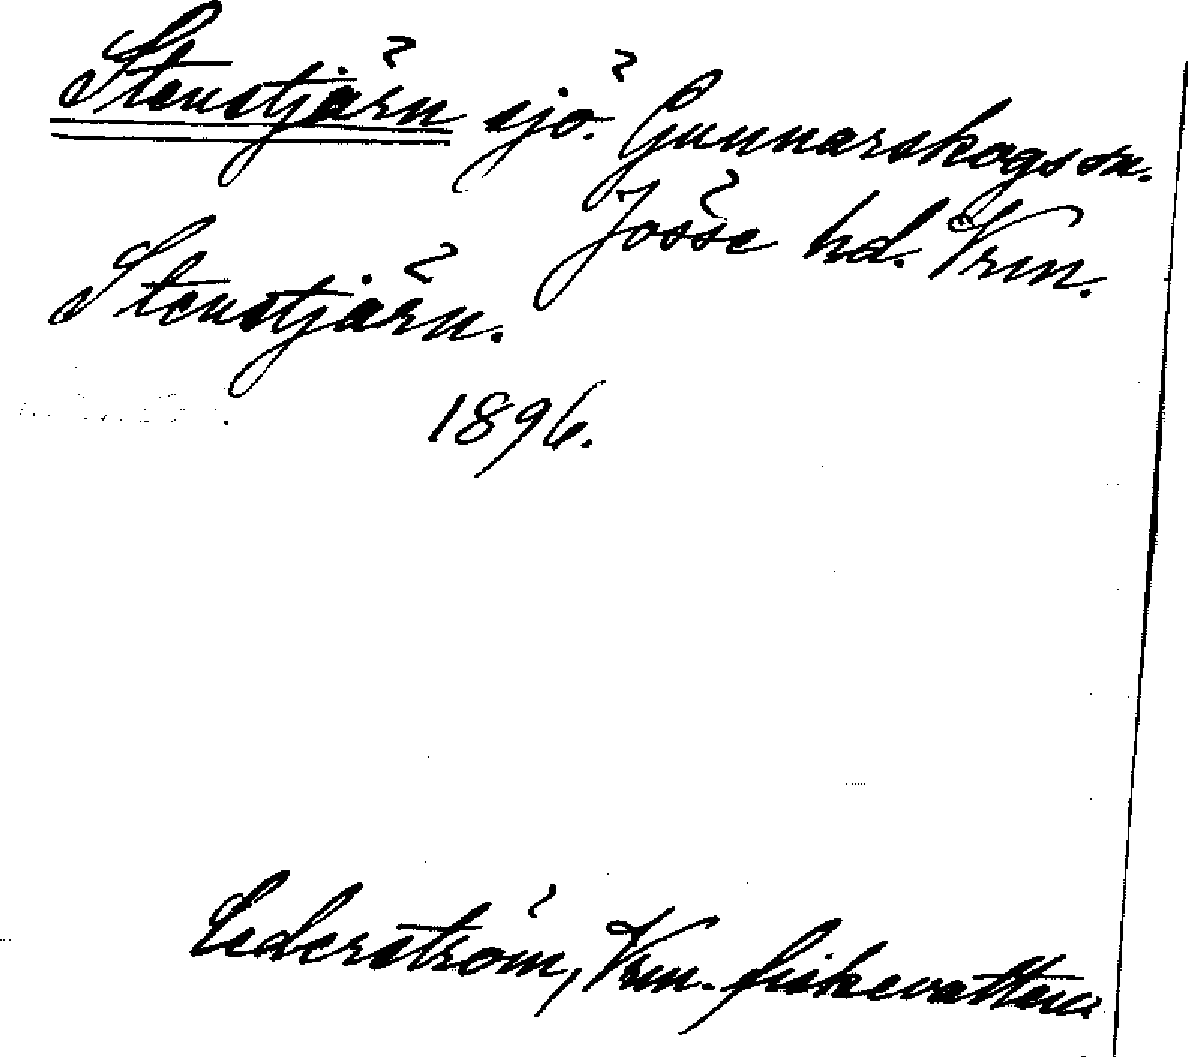 Stenstjärn sjö. Gunnarskogs sn.
Jösse hd. Vrm.
Stenstjärn.
1896.
Cederström, Vrm. fiskevatten.